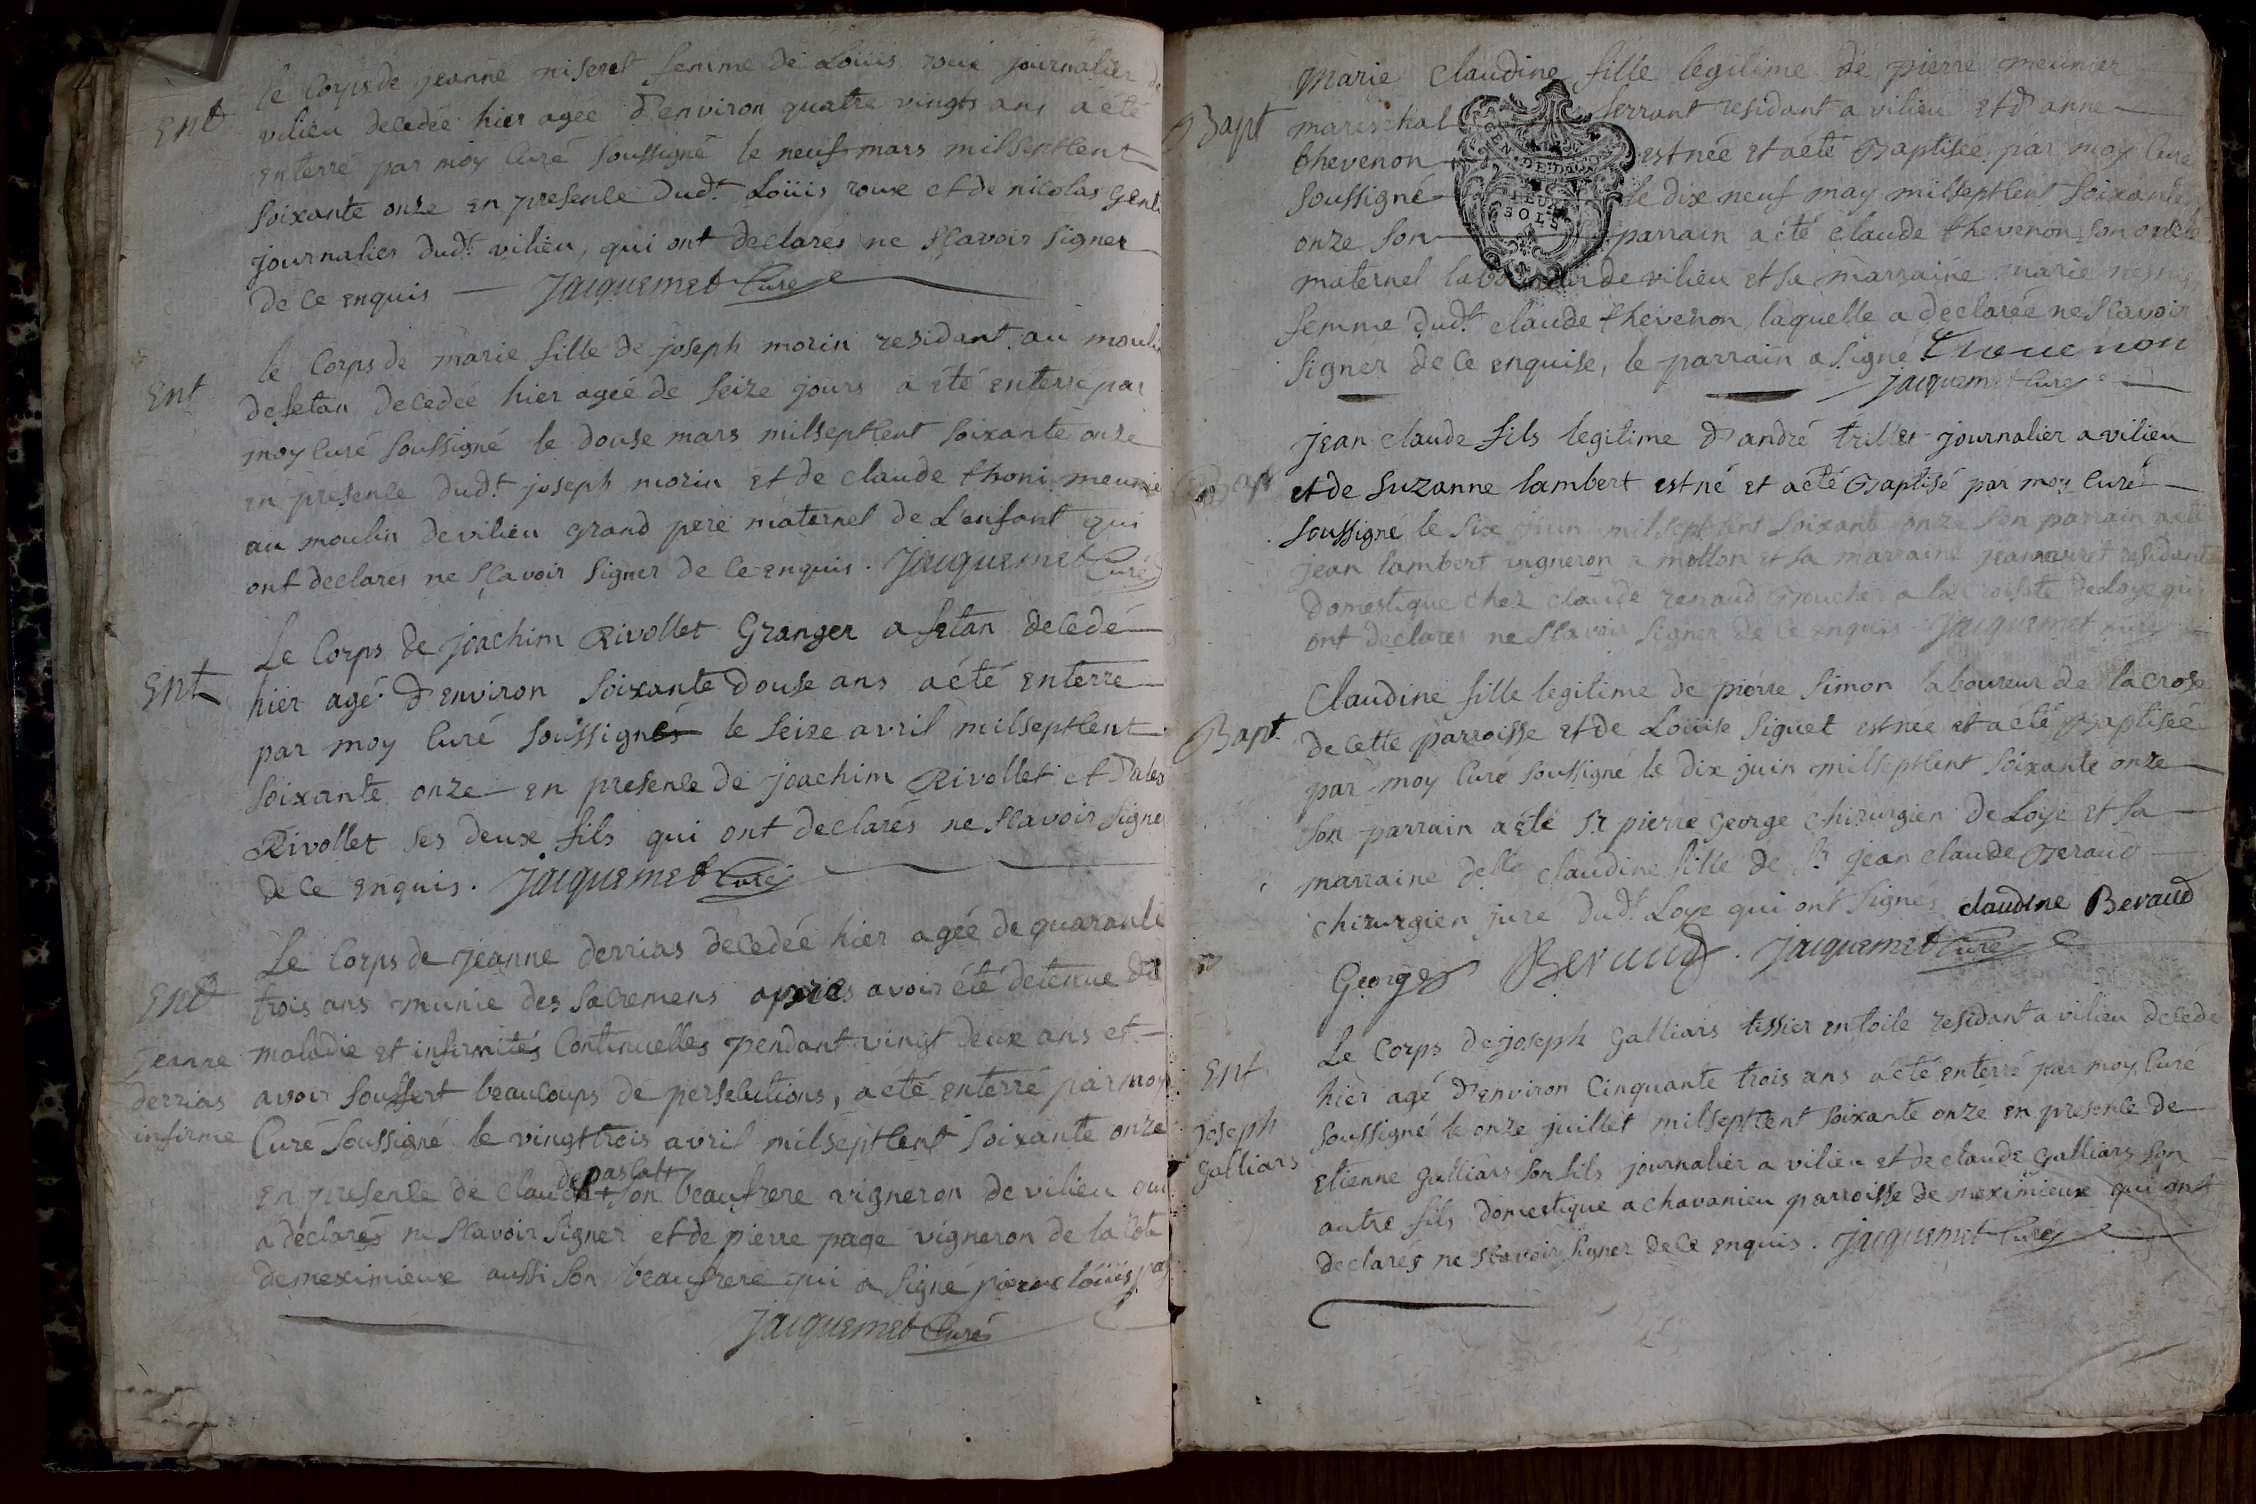 le Corps de jeanne niseret femme de Loüis roux journalier de
Ent
vilieu decedée hier agée d'environ quatre vingts ans a été
enterré par moy Curé soussigné le neuf mars milseptcent
soixante onze en presence dud.t Loüis roux et de nicolas
journalier dud.t vilieu, qui ont declares ne scavoir signer
de ce enquis Jacquemet Curé
le Corps de marie fille de joseph morin residant au moulin
Ent
de fetan decedée hier agée de seize jours a été enterré par
moy Curé soussigné le douse mars milseptcent soixante onze
en presence dud.t joseph morin et de claude thoni meunie
au moulin de vilieu grand pere maternel de L'enfant qui
ont declares ne scavoir signer de ce enquis. Jacquemet Curé
Le Corps de joachim Rivollet Granger a fetan decedé
Ent
hier agé d'environ soixante douse ans a été enterré
par moy Curé soussignés le seize avril milseptcent
soixante onze en presence de joachim Rivollet et
Rivollet ses deux fils qui ont declarés ne scavoir signer
de ce enquis. Jacquemet Curé
Le Corps de jeanne derrias decedée hier agée de quarante
Ent
trois ans munie des sacremens apres avoir été detenue de
jeanne
derrias
infirme
maladie et infirmités Continuelles pendant vingt deux ans et
avoir souffert beaucoups de persecutions, a été enterré par moy
Curé soussigné le vingt trois avril milseptcent soixante onze
de pascal +
en presence de claude + son beaufrere vigneron de vilieu qui
a declarés ne scavoir signer et de pierre page vigneron de la Cote
de meximieux aussi son beaufrere qui a signé pierre loüis pag
Jacquemet Curé
Marie Claudine fille legitime de pierre meunier
Bapt
mareschal ferrant residant a vilieu et d'anne
thevenon est née et a été Baptisée par moy Curé
soussigné le dix neuf may milseptcent soixante
onze son parrain a été claude thevenon son oncle
maternel de vilieu et sa marraine marie
femme dud.t claude thevenon, laquelle a declarée ne scavoir
signer de ce enquise, le parrain a signé Thevenon
Jacquemet Curé
jean claude fils legitime d'andré trillet journalier a vilieu
Bapt
et de suzanne lambert est né et a été Baptisé par moy Curé
soussigné le six juin milseptcent soixante onze son parrain a été
jean lambert vigneron a mollon et sa marraine residante
domestique chez claude renaud Boucher a la de Loye qui
ont declares ne scavoir signer de ce enquis Jacquemet curé
Claudine fille legitime de pierre simon laboureur de la crose
Bapt
de cette parroisse et de Loüise siguet est née et a été Baptisée
par moy Curé soussigné le dix juin milseptcent soixante onze
son parrain a été sr pierre George chirurgien de Loye et sa
marraine delle claudine fille de sr jean claude Beraud
chirurgien juré dud.t Loye qui ont signés claudine Beraud
George Beraud. Jacquemet Curé
Le Corps de joseph galliars tissier en toile residant a vilieu decedé
Ent
hier agé d'environ Cinquante trois ans a été enterré par moy Curé
joseph
galliars
soussigné le onze juillet milseptcent soixante onze en presence de
etienne galliars son fils journalier a vilieu et de claude galliars son
autre fils domestique a chavanieu parroisse de meximieux qui ont
declarés ne scavoir signer de ce enquis. Jacquemet Curé